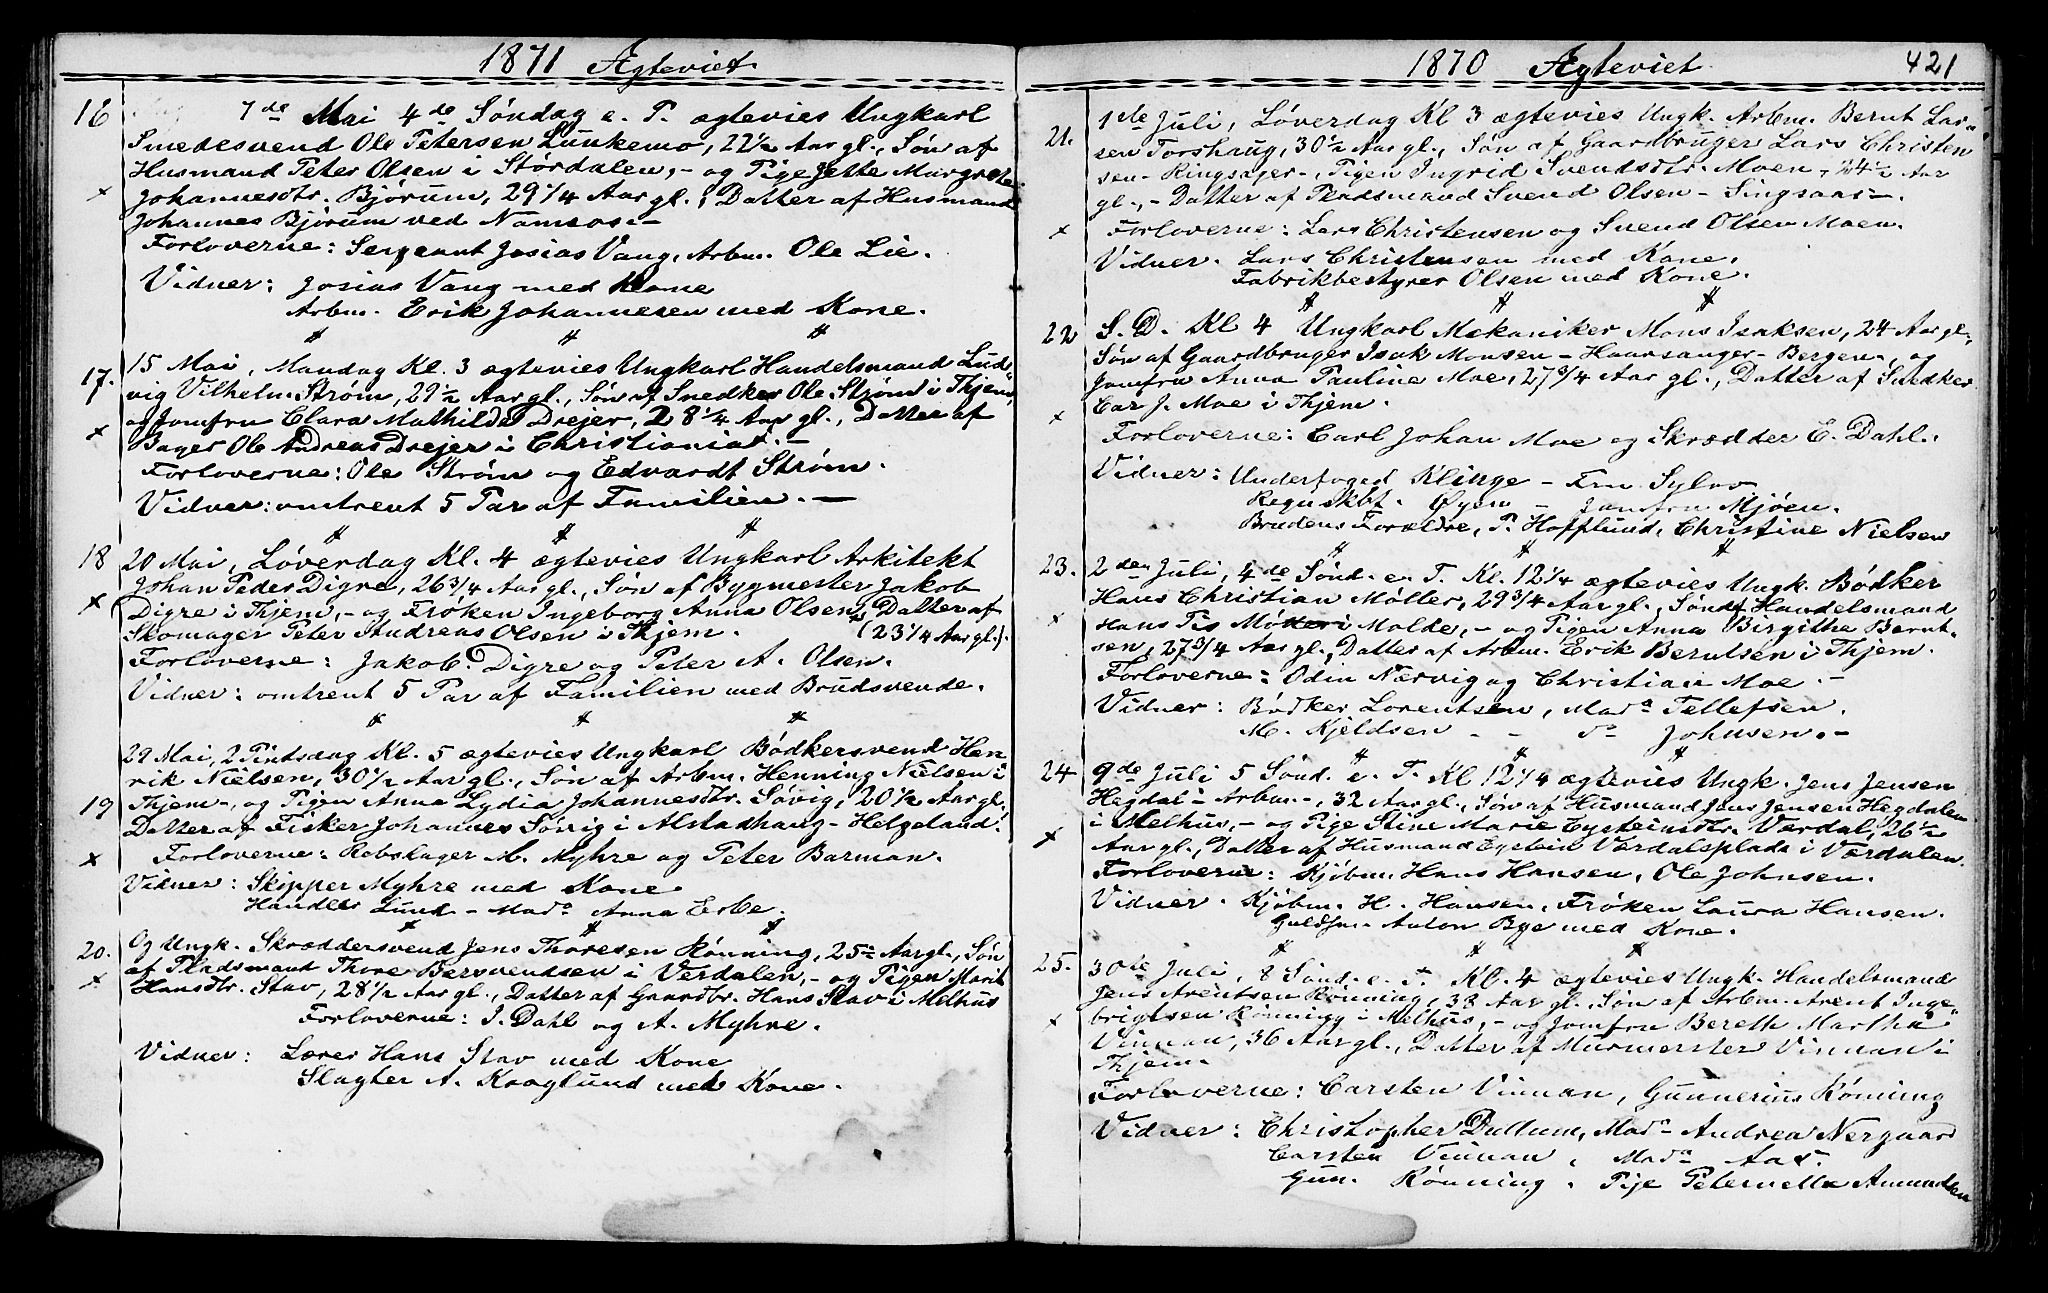 1871 Ægteviet.
16 7de Mai 4de Søndag e. P. ægtevies Ungkarl
Smedesvend Ole Petersen Lunkemo, 22 1/2 Aar gl., Søn af
Husmand Peter Olsen i Størdalen, - og Pige Jette Margrete
Johannesdtr. Bjørum, 29 1/4 Aar gl., Datter af Husmand
x
Johannes Bjørum ved Namsos. -
Forloverne: Sergeant Josias Vang, Arbm. Ole Lie.
Vidner: Josias Vang med Kone
Arbm. Erik Johannesen med Kone.
17. 15 Mai, Mandag Kl. 3 ægtevies Ungkarl Handelsmand Lud-
vig Vilhelm Strøm, 29 1/2 Aar gl., Søn af Snedker Ole Strøm i Thjem,
og Jomfru Clara Mathilde Drejer, 28 1/4 Aar gl., Datter af
x Bager Ole Andreas Drejer i Christiania. -
Forloverne: Ole Strøm og Edvardt Strøm.
Vidner: omtrent 5 Par af Familien. -
18 20 Mai, Løverdag Kl. 4 ægtevies Ungkarl Arkitekt
Johan Peder Digre, 26 3/4 Aar gl., Søn af Bygmester Jakob
x Digre i Thjem, - og Frøken Ingeborg Anna Olsen, Datter af
Skomager Peter Andreas Olsen i Thjem. (23 1/4 Aar gl.).
Forloverne: Jakob Digre og Peter A. Olsen.
Vidner: omtrent 5 Par af Familien med Brudsvende.
29 Mai, 2 Pintsdag Kl. 5 ægtevies Ungkarl Bødkersvend Hen-
rik Nielsen, 30 1/2 Aar gl., Søn af Arbm. Henning Nielsen i
19 Thjem -, og Pigen Anna Lydia Johannesdtr. Søvig, 20 1/2 Aar gl.,
Datter af Fisker Johannes Søvig i Alstadhaug - Helgeland.
x Forloverne: Rebslager M. Myhre og Peter Barman.
Vidner: Skipper Myhre med Kone
Handler Lund - Mada Anna Erbe.
20. Og Ungk. Skræddersvend Jens Thoresen Rønning, 25 Aar gl., Søn
x af Pladsmand Thore Bersvendsen i Verdalen, - og Pigen Marit
Hansdtr. Stav, 28 1/2 Aar gl., Datter af Gaardbr. Hans Stav i Melhus
Forloverne: J. Dahl og A. Myhre.
Vidner: Lærer Hans Stav med Kone
Slagter A. Kraglund med Kone.
1870 Ægteviet 421
21. 1ste Juli, Løverdag Kl 3 ægtevies Ungk. Arbm. Bernt Lar-
sen Torshaug, 30 1/2 Aar gl., Søn af Gaardbruger Lars Christen
sen - Ringsajer -, Pigen Ingrid Svendsdtr. Moen, 24 1/2 Aar
gl., - Datter af Pladsmand Svend Olsen - Singsaas -.
x Forloverne: Lars Christensen og Svend Olsen Moen.
Vidner. Lars Christensen med Kone.
Fabrikbestyrer Olsen med Kone.
22 S. D. Kl 4 Ungkarl Mekaniker Mons Isaksen, 24 Aar gl.,
Søn af Gaardbruger Isak Monsen - Haarsanger - Bergen -, og
Jomfru Anna Pauline Moe, 27 3/4 Aar gl., Datter af Snedker
x Car J. Moe i Thjem.
Forloverne: Carl Johan Moe og Skrædder E. Dahl.
Vidner: Underfoged Klinge - Fru Sylow
Regnskbf. Øyen - Jomfru Mjøen.
Brudens Forældre, P. Hofflund, Christine Nielsen
23. 2den Juli, 4de Sønd. e. T. Kl. 12 1/4 ægtevies Ungk. Bødker
Hans Christian Møller, 29 3/4 Aar gl., Søn af Handelsmand
x Hans Tis Møller i Molde, - og Pigen Anna Birgithe Bernt-
sen, 27 3/4 Aar gl., Datter af Arbm. Erik Berntsen i Thjem.
Forloverne: Odin Nærvig og Christian Moe. -
Vidner: Bødker Lorentsen, Mada Tellefsen.
M. Kjeldsen - - da Johnsen. -
24 9de Juli 5 Sønd. e. T. Kl 12 1/4 ægtevies Ungk. Jens Jensen
Hegdal - Arbm -, 32 Aar gl., Søn af Husmand Jens Jensen Hegdalen
x i Melhus, - og Pige Stine Marie Eysteinsdtr. Værdal, 26 1/2
Aar gl., Datter af Husmand Eystein Værdalsplads i Værdalen.
Forloverne: Kjøbm. Hans Hansen, Ole Johnsen.
Vidner. Kjøbm. H. Hansen, Frøken Laura Hansen.
Guldsm. Anton Bye med Kone.
25. 30te Juli, 8 Sønd. e. T. Kl. 4 ægtevies Ungk. Handelsmand
Jens Arentsen Rønning, 33 Aar gl., Søn af Arbm. Arent Inge-
x brigtsen Rønning i Melhus, - og Jomfru Bereth Martha
Vinnan, 36 Aar gl., Datter af Murmester Vinnan i
Thjem.
Forloverne: Carsten Vinnan, Gunnerius Rønning
Vidner: Christopher Dullum, Mada Andrea Nergaard
Carsten Vinnan, Mada Aas.
Gun. Rønning. Pije Peternella Amundsen